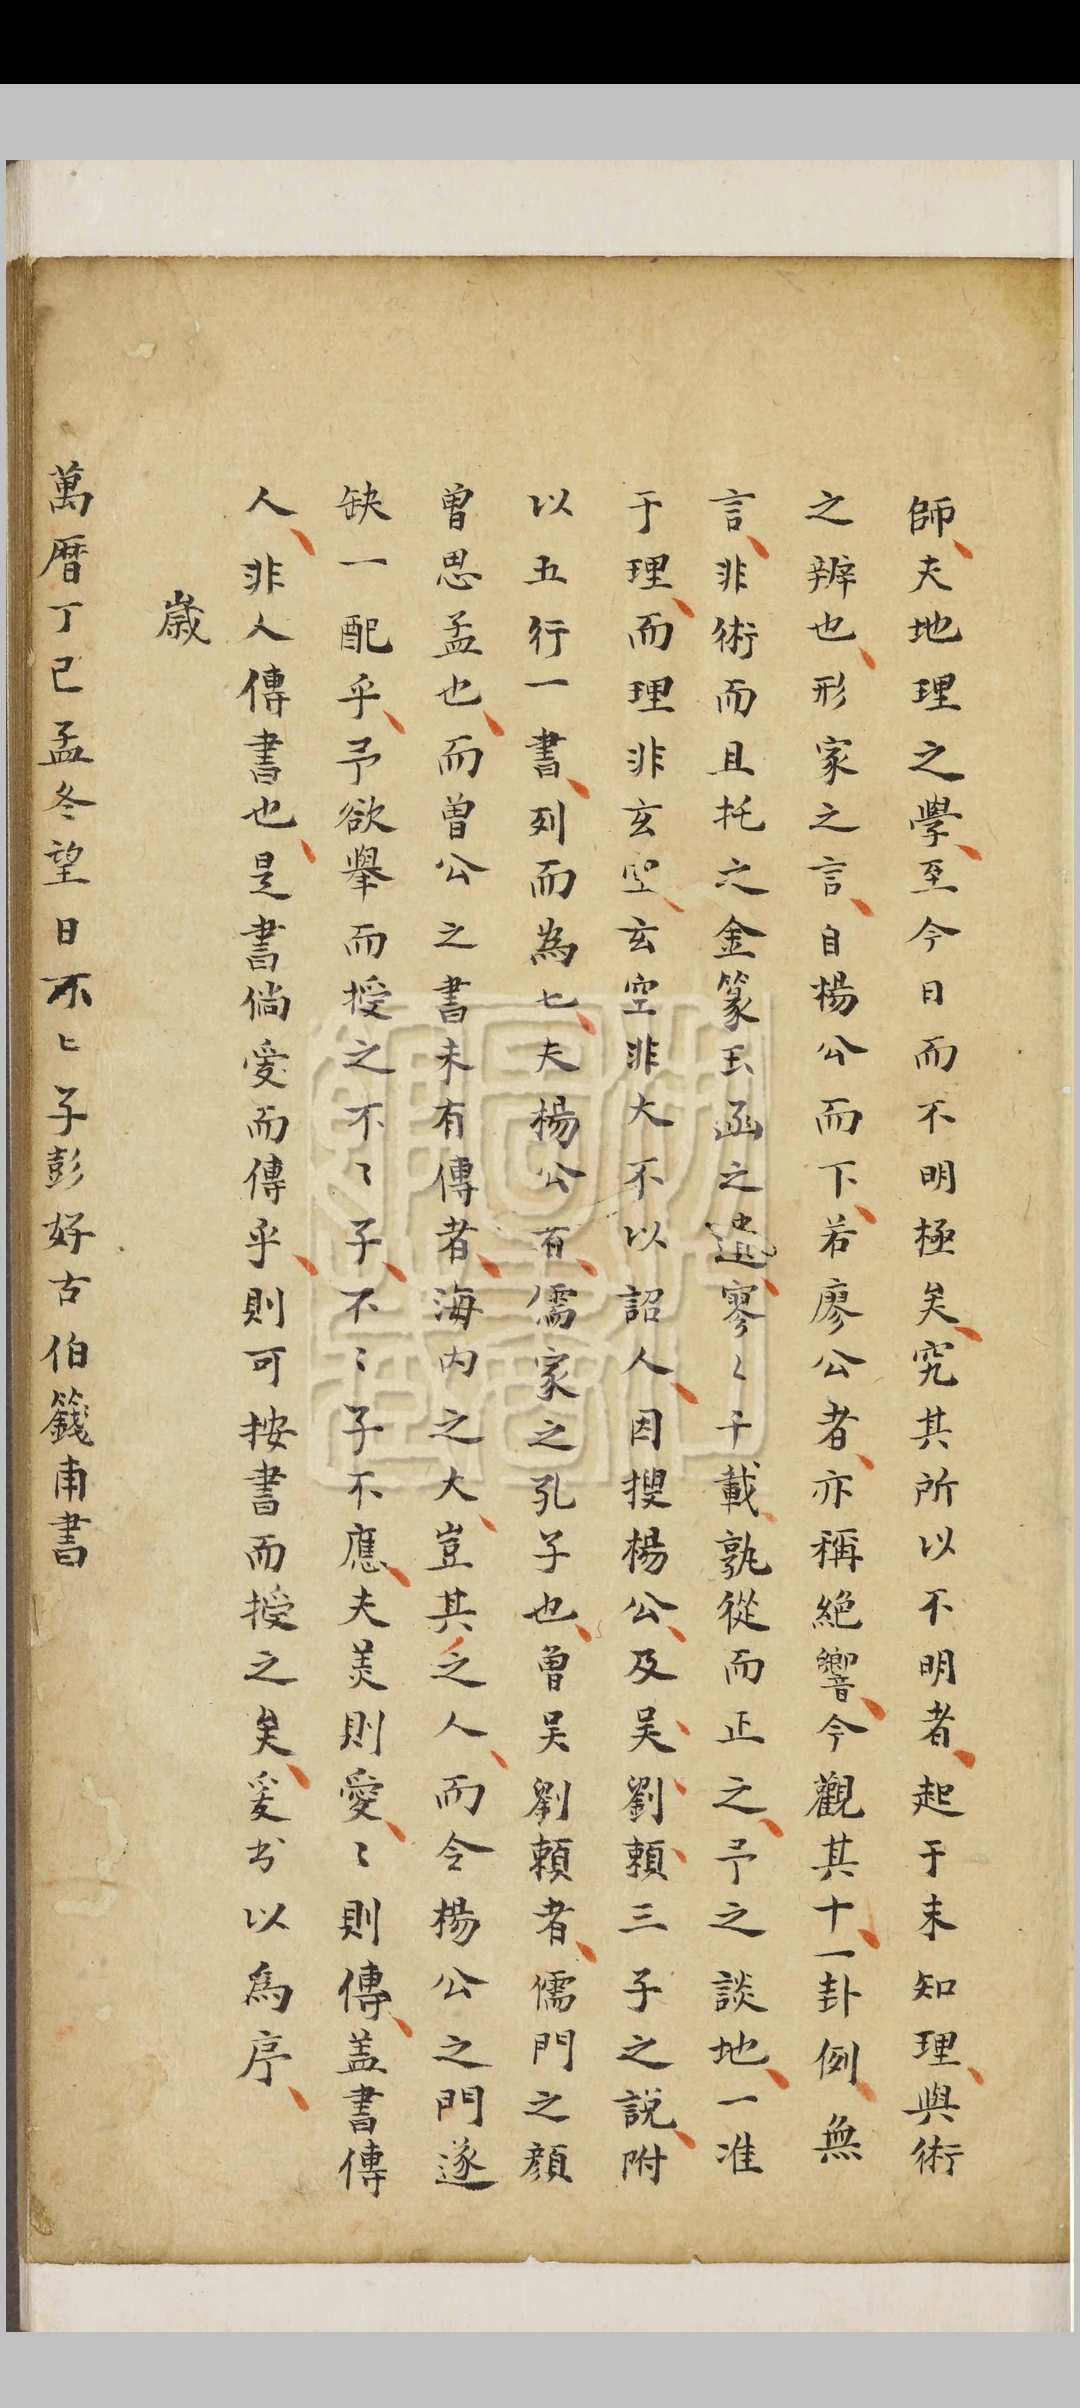 師夫地理之學至今日而不明極矣究其所以不明者起于未知理與術
之辨也形家之言自楊公而下若廖公者亦稱絕響今觀其十一卦例無
言非術而且托之金篆玉函之遺寥〻千載孰從而正之予之談地一准
于理而理非玄空玄空非大不以詔人因搜楊公及吴劉頼三子之說附
以五行一書列而為七夫楊公有儒家之孔子也曾吴劉頼者儒門之顔
曾思孟也而曾公之書未有傳者海内之大豈其乏人而令楊公之門遂
缺一配乎予欲舉而授之不〻子不〻子不應夫美則愛〻則傳盖書傳
人非人傳書也是書倘愛而傳乎則可按書而授之矣爰书以為序
歲
萬暦丁巳孟冬望日不〻子彭好古伯籛甫書